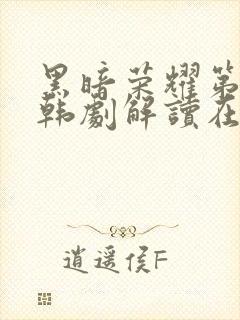 黑暗荣耀第
韩劇解讀在
逍遥侯F